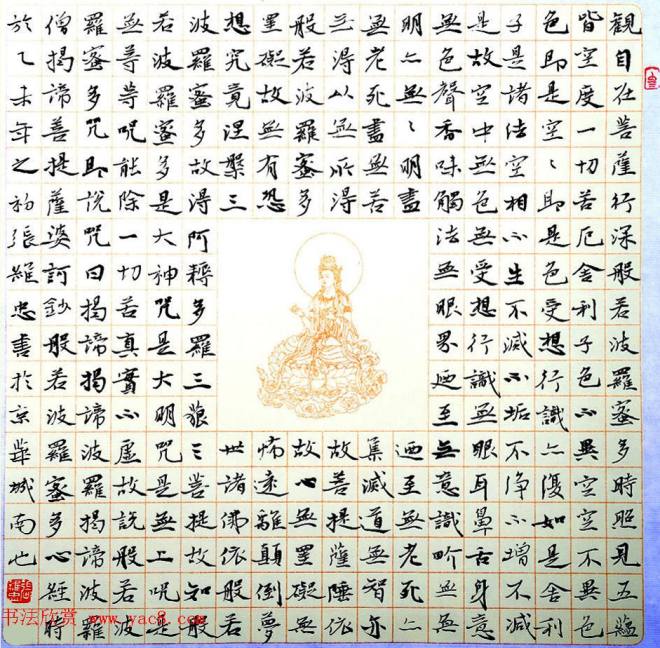 觀自在菩薩行深般若波羅蜜多時照見五蘊
皆空度一切苦厄舍利子色不異空空不異色
色即是空〻即是色受想行識亦復如是舍利
子是諸法空相不生不滅不垢不淨不增不減
是故空中無色無受想行識無眼耳鼻舌身意
無色聲香味觸法無眼界廼至無意識界無無
明亦無〻明盡廼至無老死亦
無老死盡無苦集滅道無智亦
無得以無所得故菩提薩埵依
般若波羅蜜多故心無罣礙無
罣礙故無有恐怖遠離顛倒夢
想究竟涅槃三世諸佛依般若
波羅蜜多故得阿耨多羅三藐三菩提故知般
若波羅蜜多是大神咒是大明咒是無上咒是
無等等呪能除一切苦真實不虛故說般若波
羅蜜多咒即說咒曰揭諦揭諦波羅揭諦波羅
僧揭諦菩提薩婆訶鈔般若波羅蜜多心經時
於乙未年之初張維忠書於京華城南也
书法欣赏 www.yac8.com